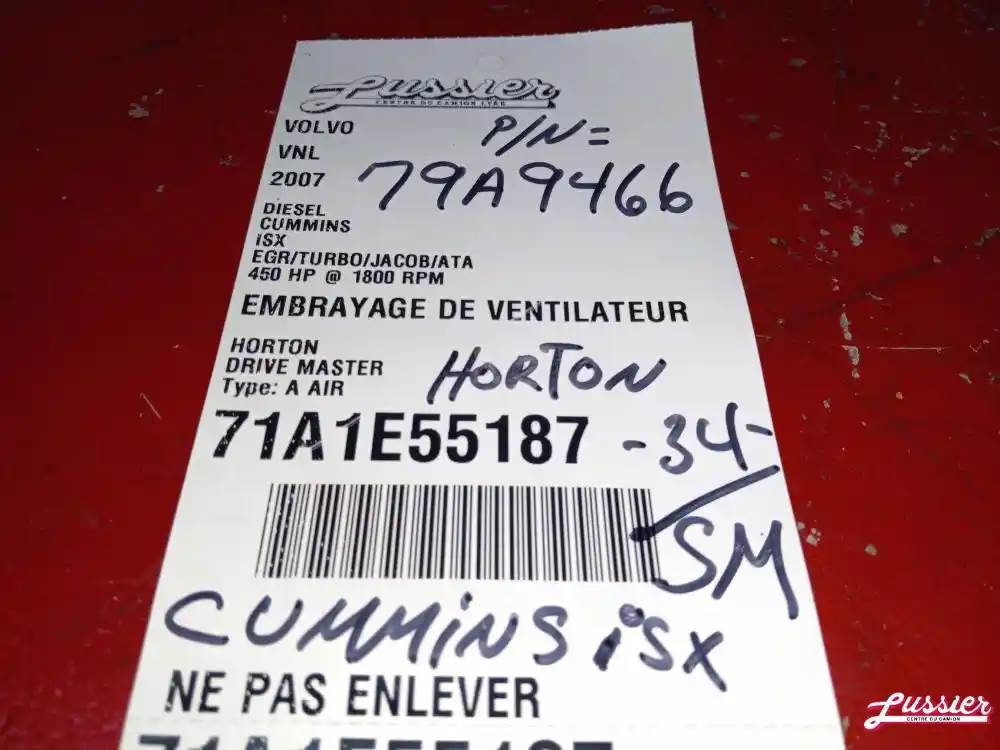 Lussier
CENTRE DU CAMION LTÉE
VOLVO
VNL
2007
P/N=
79A9466
DIESEL
CUMMINS
ISX
EGR/TURBO/JACOB/ATA
450 HP @ 1800 RPM
EMBRAYAGE DE VENTILATEUR
HORTON
DRIVE MASTER
Type: A AIR
HORTON
71A1E55187
-34-
SM
CUMMINS ISX
NE PAS ENLEVER
71A1E55187
Lussier
CENTRE DU CAMION